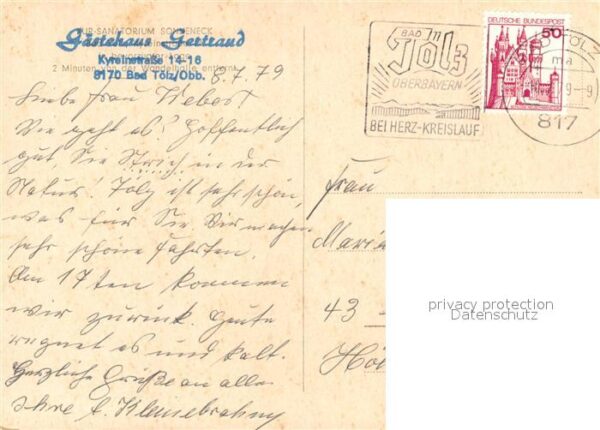 KUR-SANATORIUM SONNENECK
Gästehaus Gertraud
Kyreinstraße 14-16
2 Minuten von der Wandelhalle entfernt
8170 Bad Tölz/Obb.
8.7.79
Liebe Frau
Wie geht es? Hoffentlich
gut Sie Strich in der
Natur! Tölz ist sehr schön,
was für Sie. Wir machen
sehr schöne Fahrten.
Am 17ten kommen
wir zurück. Heute
regnet es und kalt.
Herzliche Grüße an alle
Ihre
BAD
Tölz
OBERBAYERN
BEI HERZ-KREISLAUF
DEUTSCHE BUNDESPOST
50
TÖLZ
ma
9-9
817
Frau
43
privacy protection
Datenschutz